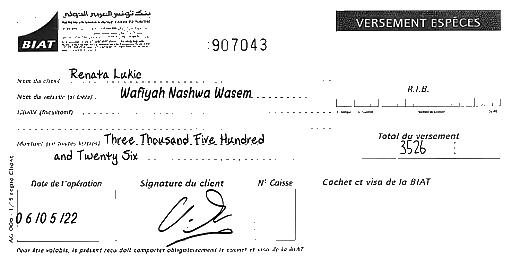 بنك تونس العربي الدولي
BIAT
VERSEMENT ESPÈCES
907043
Nom du client Renata Lukic
Nom du remettant (si tiers) Wafiyah Nashwa Wasem
R.I.B.
Libellé (facultatif)
Montant (en toutes lettres) Three Thousand Five Hundred
and Twenty Six
Total du versement
3526
Date de l'opération
Signature du client
N° Caisse
Cachet et visa de la BIAT
06/05/22
Pour être valable, le présent reçu doit comporter obligatoirement le cachet et visa de la BIAT